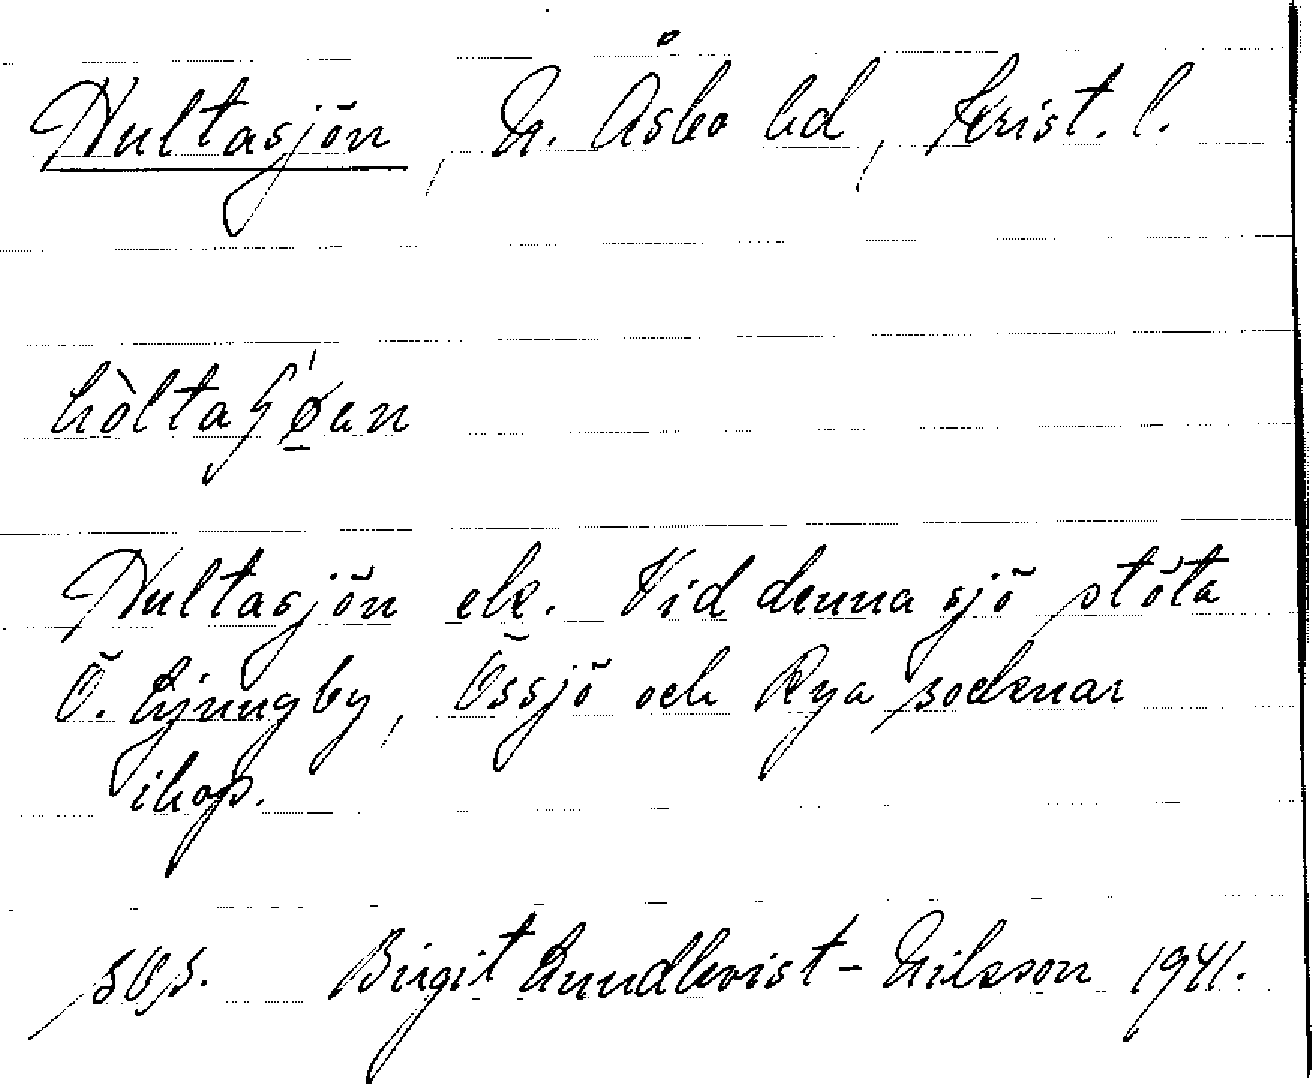 Hultasjön, N. Åsbo hd, Krist. l.
hòltaʂǿ̠en
Hultasjön ek. Vid denna sjö stöta
Ö. Ljungby, Össjö och Rya socknar
ihop.
Birgit Lundkvist-Nilsson 1941.